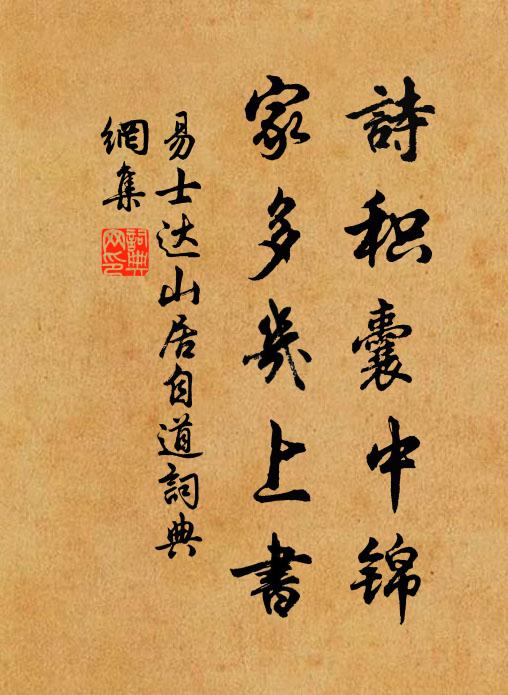 詩积囊中锦
家多几上書
易士达山居自道詞典
網集
詞典
网印